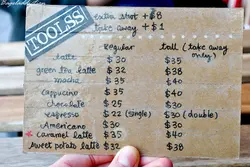 TOOLSS
extra shot +$8
take away +$1
Regular tall (take away only)
latte $30 $35
green tea latte $32 $38
mocha $35 $40
cappuccino $35 $40
chocolate $25 $30
espresso $22 (single) $30 (double)
Americano $30 $35
caramel latte $35 $40
sweet potato latte $32 $38